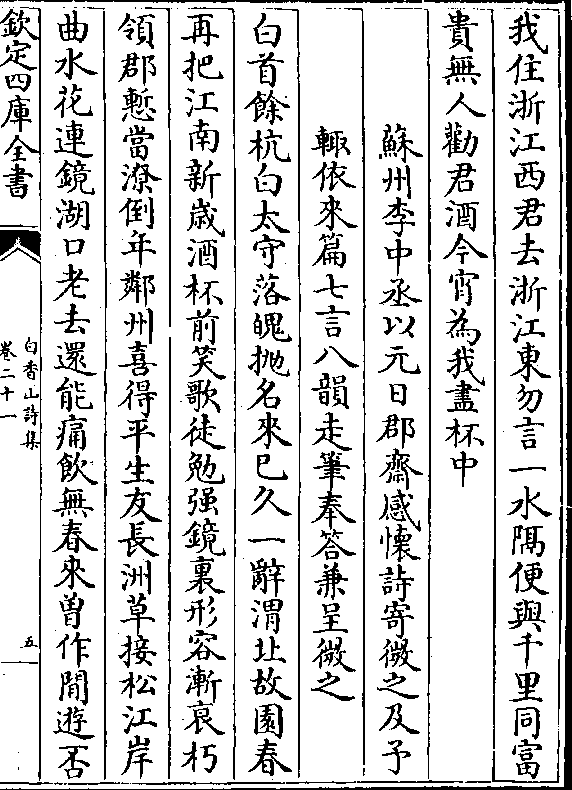 我住浙江西君去浙江東勿言一水隔便與千里同富
貴無人勸君酒今宵為我盡杯中
蘇州李中丞以元日郡齋感懐詩寄微之及予
輙依來篇七言八韻走筆奉答兼呈微之
白首餘杭白太守落魄抛名來已久一辭渭北故園春
再把江南新歳酒杯前笑歌徒勉强鏡裏形容漸衰朽
領郡慙當潦倒年鄰州喜得平生友長洲草接松江岸
曲水花連鏡湖口老去還能痛飲無春來曽作閒遊否
欽定四庫全書
白香山詩集
卷二十一
五